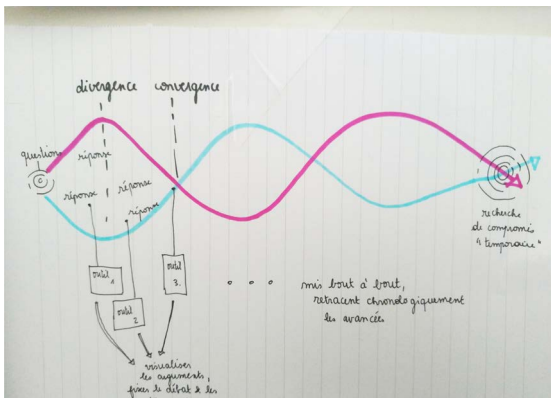 divergence
convergence
question
réponse
réponse
réponse
réponse
outil
1
outil
2
outil
3.
recherche
de compromis
"temporaire"
mis bout à bout,
retracent chronologiquement
les avancées
visualiser
les arguments,
fixer le débat & les